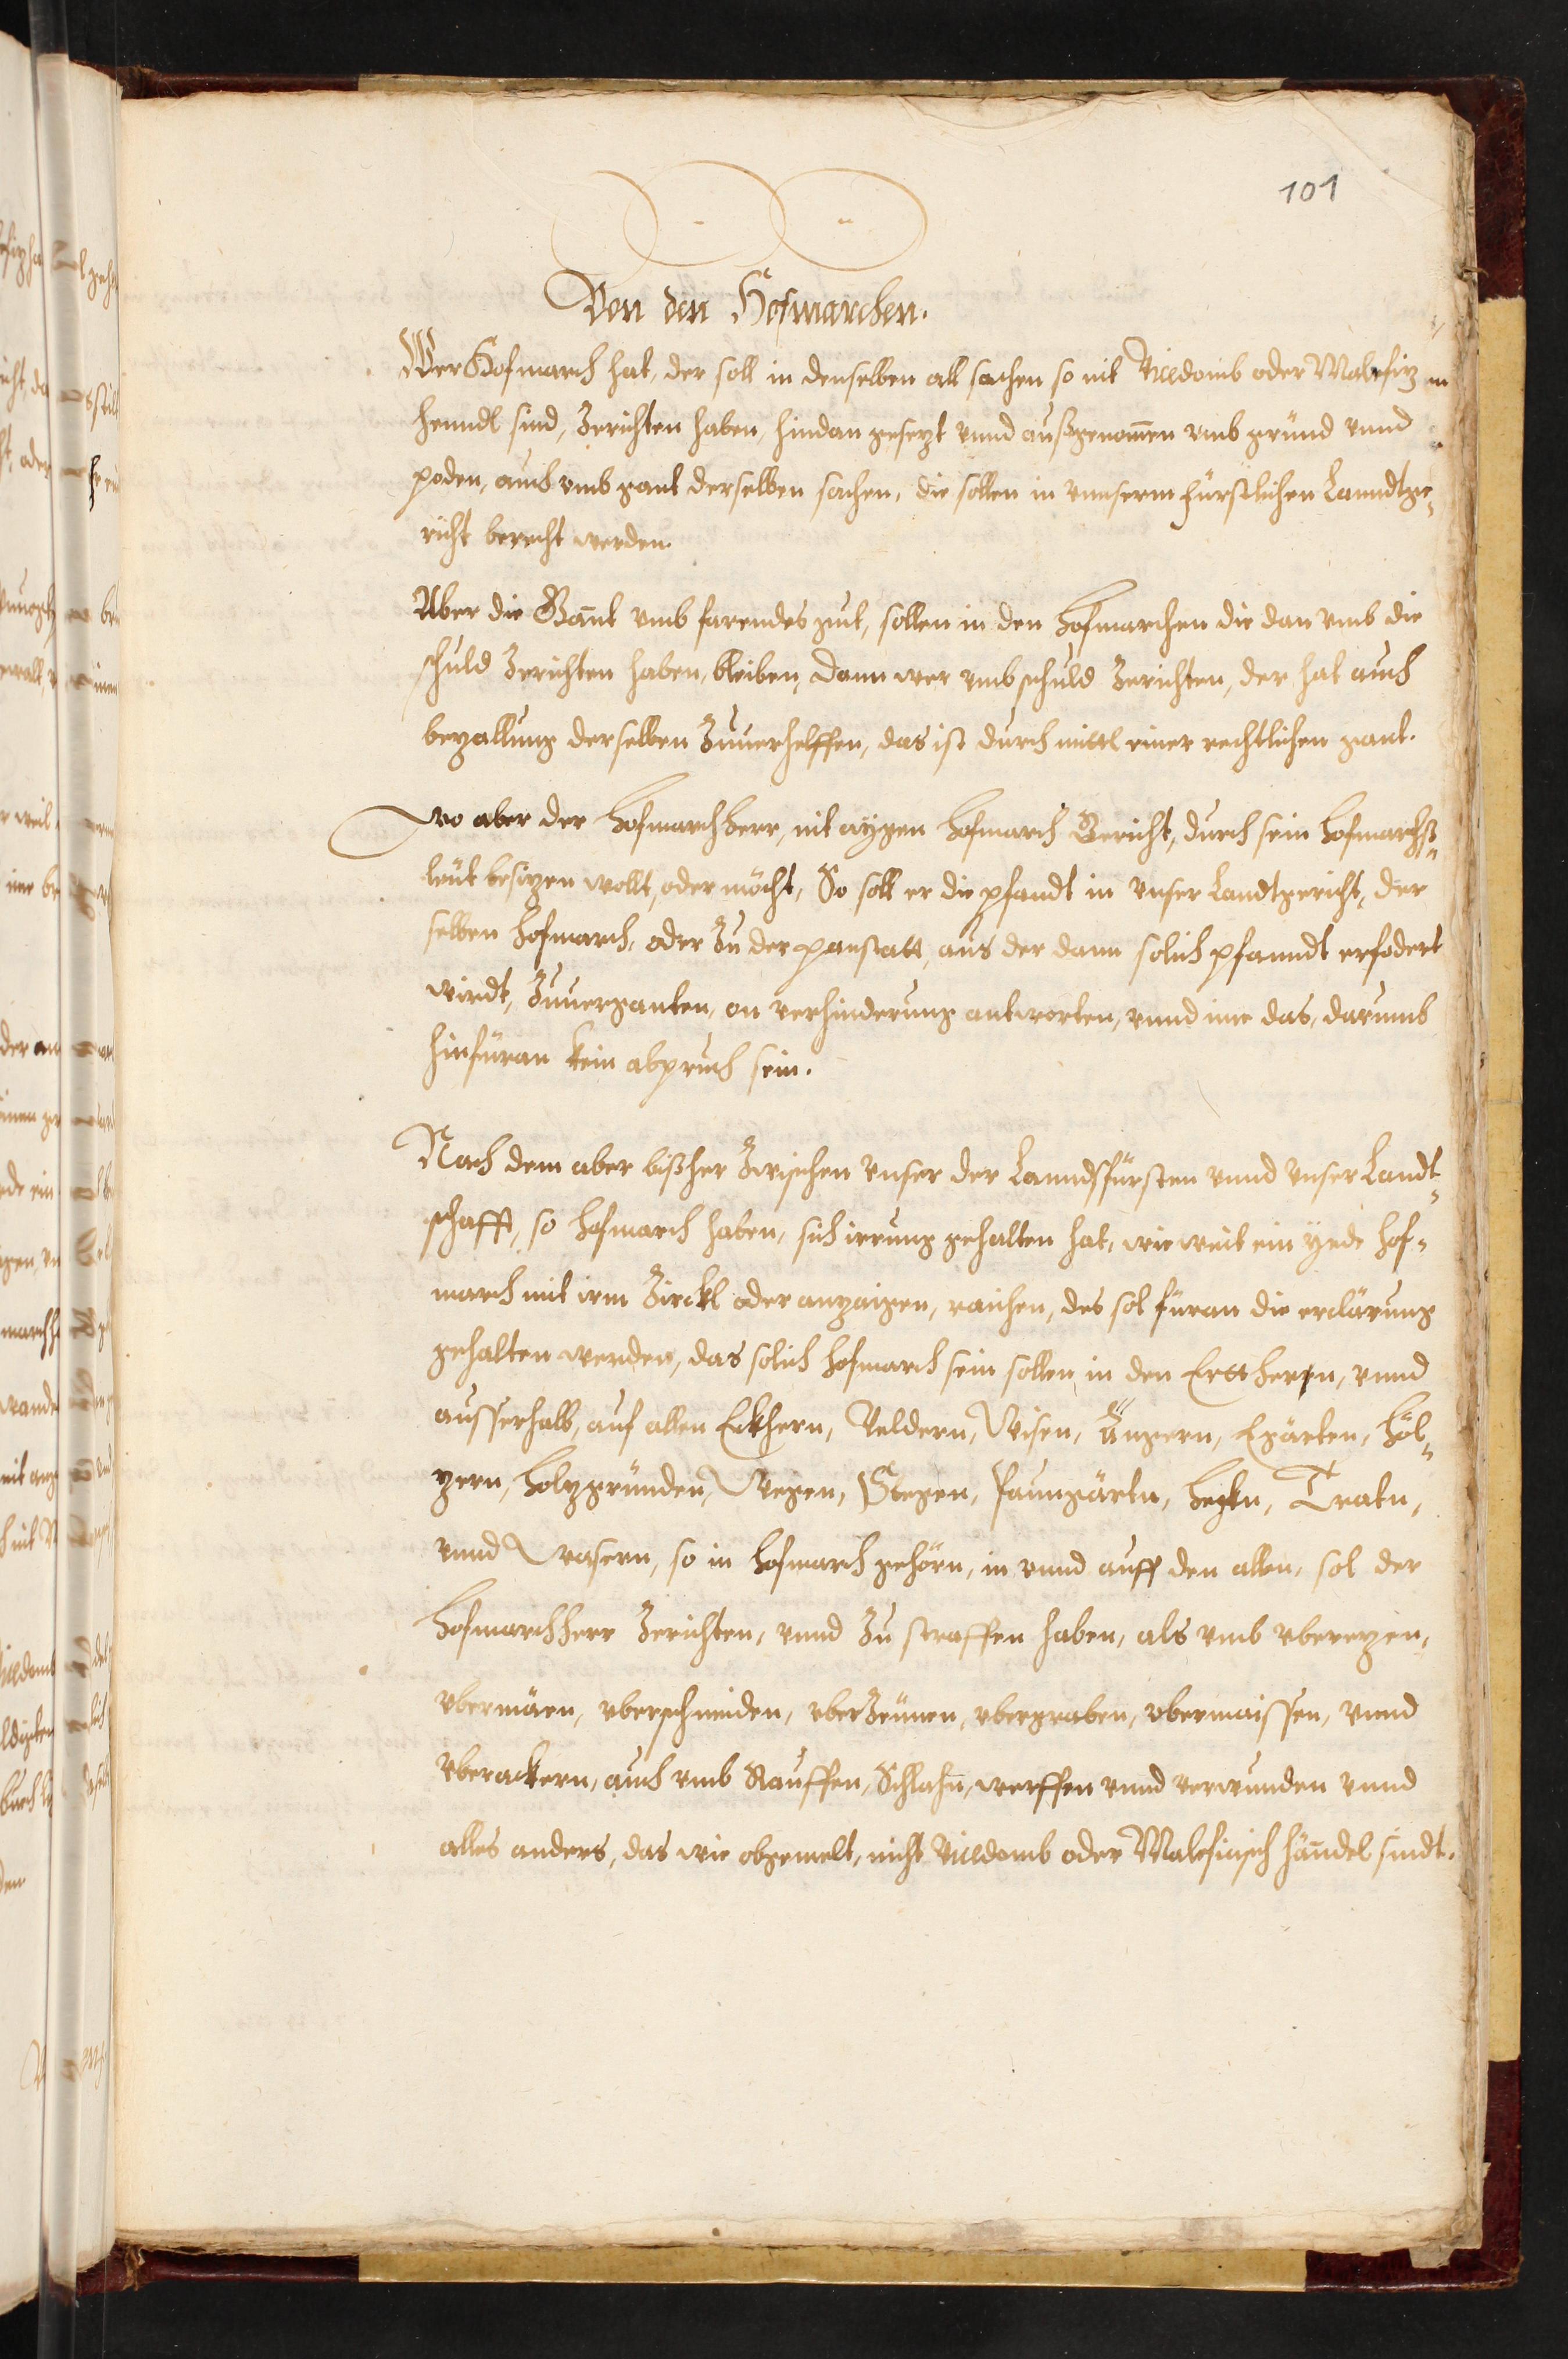 101
Von den Hofmarchen.
Wer Hofmarch hat, der soll in denselben all sachen so nit Vicedomb oder Malefiz
henndl sind, Zerichten haben, hindan gesezt vnnd außgenomen vmb grund vnnd
poden, auch vmb gant derselben sachen, die sollen in vnnserm fürstlichen Lanndtge„
richt berecht werden.
Aber die Gannt vmb farendes guet, sollen in den Hofmarchen die dan vmb die
schuld Zerichten haben, bleiben, dann wer vmb schuld Zerichten, der hat auch
bezallung derselben Zuuerhelffen, das ist durch mittl einer rechtlichen gant.
Wo aber der Hofmarchherr, nit aygen Hofmarch Gericht, durch sein Hofmarchs„
leüt besizen wollt, oder möcht, So soll er die pfandt in vnser Landtgericht, der
selben Hofmarch, oder Zu der panstatt, aus der dann solich pfanndt erfodert
wirdt, Zuuerganten, on verhinderung antworten, vnnd ime das, darumb
hinfüran kein abpruch sein.
Nach dem aber bißher Zwischen vnser der Lanndsfürsten vnnd vnser Landt„
schafft, so Hofmarch haben, sich irrung gehalten hat, wie weit ein yede Hof„
march mit irm Zirckl oder anzaigen, raichen, des sol füran die erclärung
gehalten werden, das solich Hofmarch sein sollen, in den Ertthern, vnnd
ausserhalb, auf allen Eckhern, Veldern, Wisen, Ängern, Egärten, Höl„
zern, Holzgründen, Wegen, Stegen, Paungärtn, Tratn,
vnnd Wasern, so in Hofmarch gehörn, in vnnd auff den allen, sol der
Hofmarchherr Zerichten, vnnd Zu straffen haben, als vmb uberezen,
vbermäen, vberschneiden, vberZeünen, vbergraben, vbermaissen, vnnd
vberackern, auch vmb Rauffen, Schlahn, werffen vnnd verwunden vnnd
alles anders, das wie obgemelt, nicht Vicedomb oder Maleficisch händel sindt.